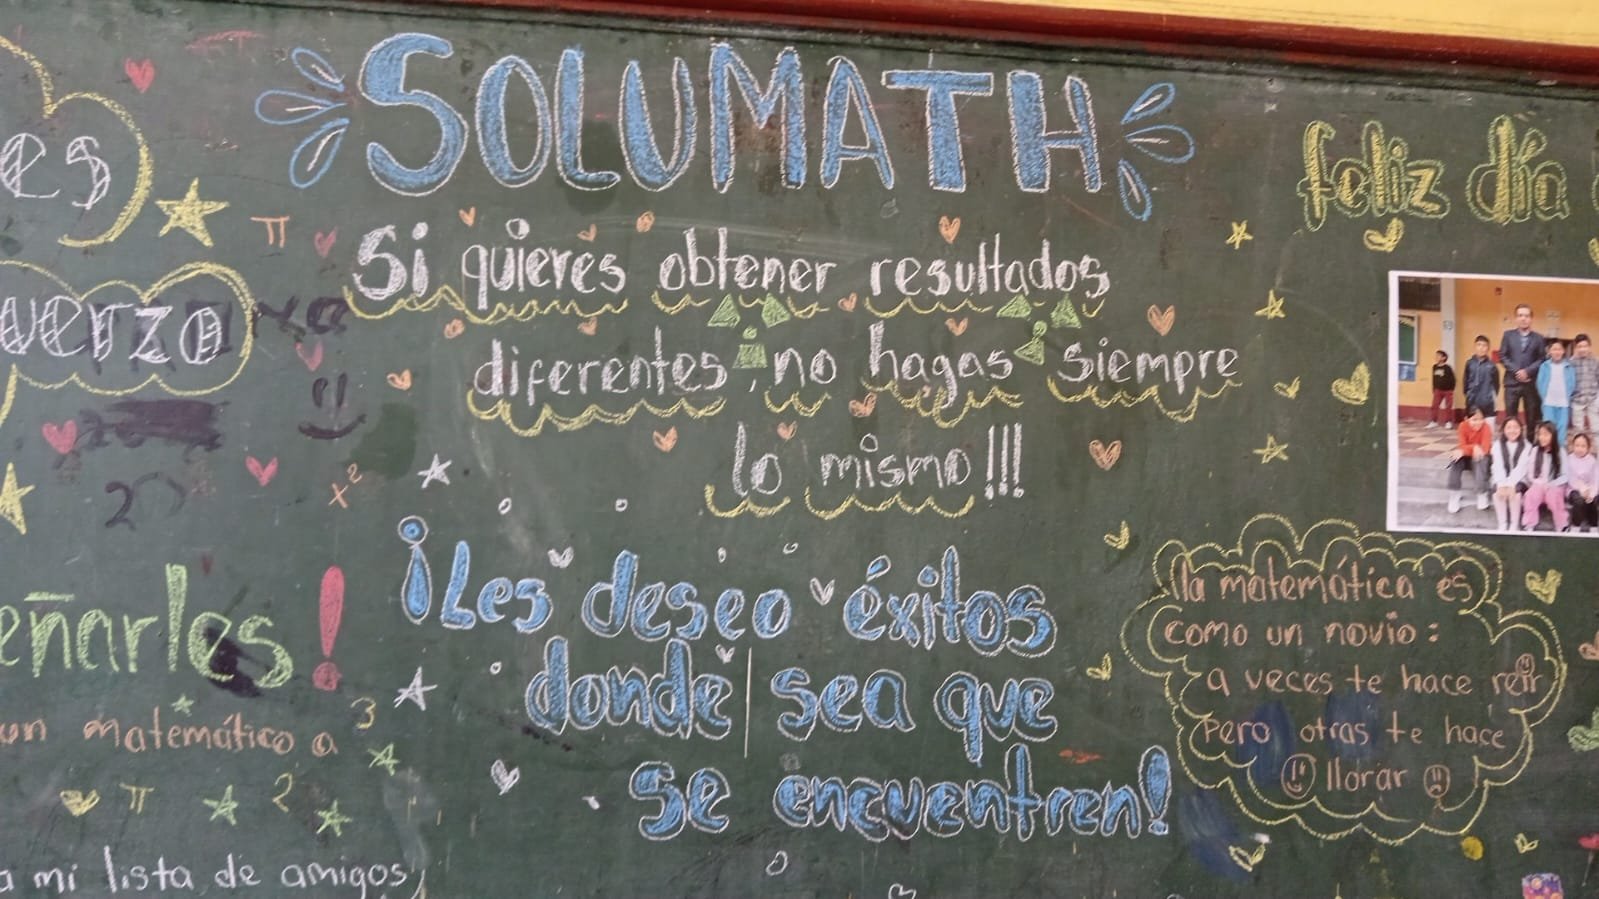 SOLUMATH
Si quieres obtener resultados
diferentes, no hagas siempre
lo mismo!!!
¡Les deseo éxitos
donde sea que
se encuentren!
feliz día
la matemática es
como un novio:
a veces te hace reír
pero otras te hace
llorar
es
uerzo
π
x²
eñarles!
un matemático a
3
π
2
a mi lista de amigos,